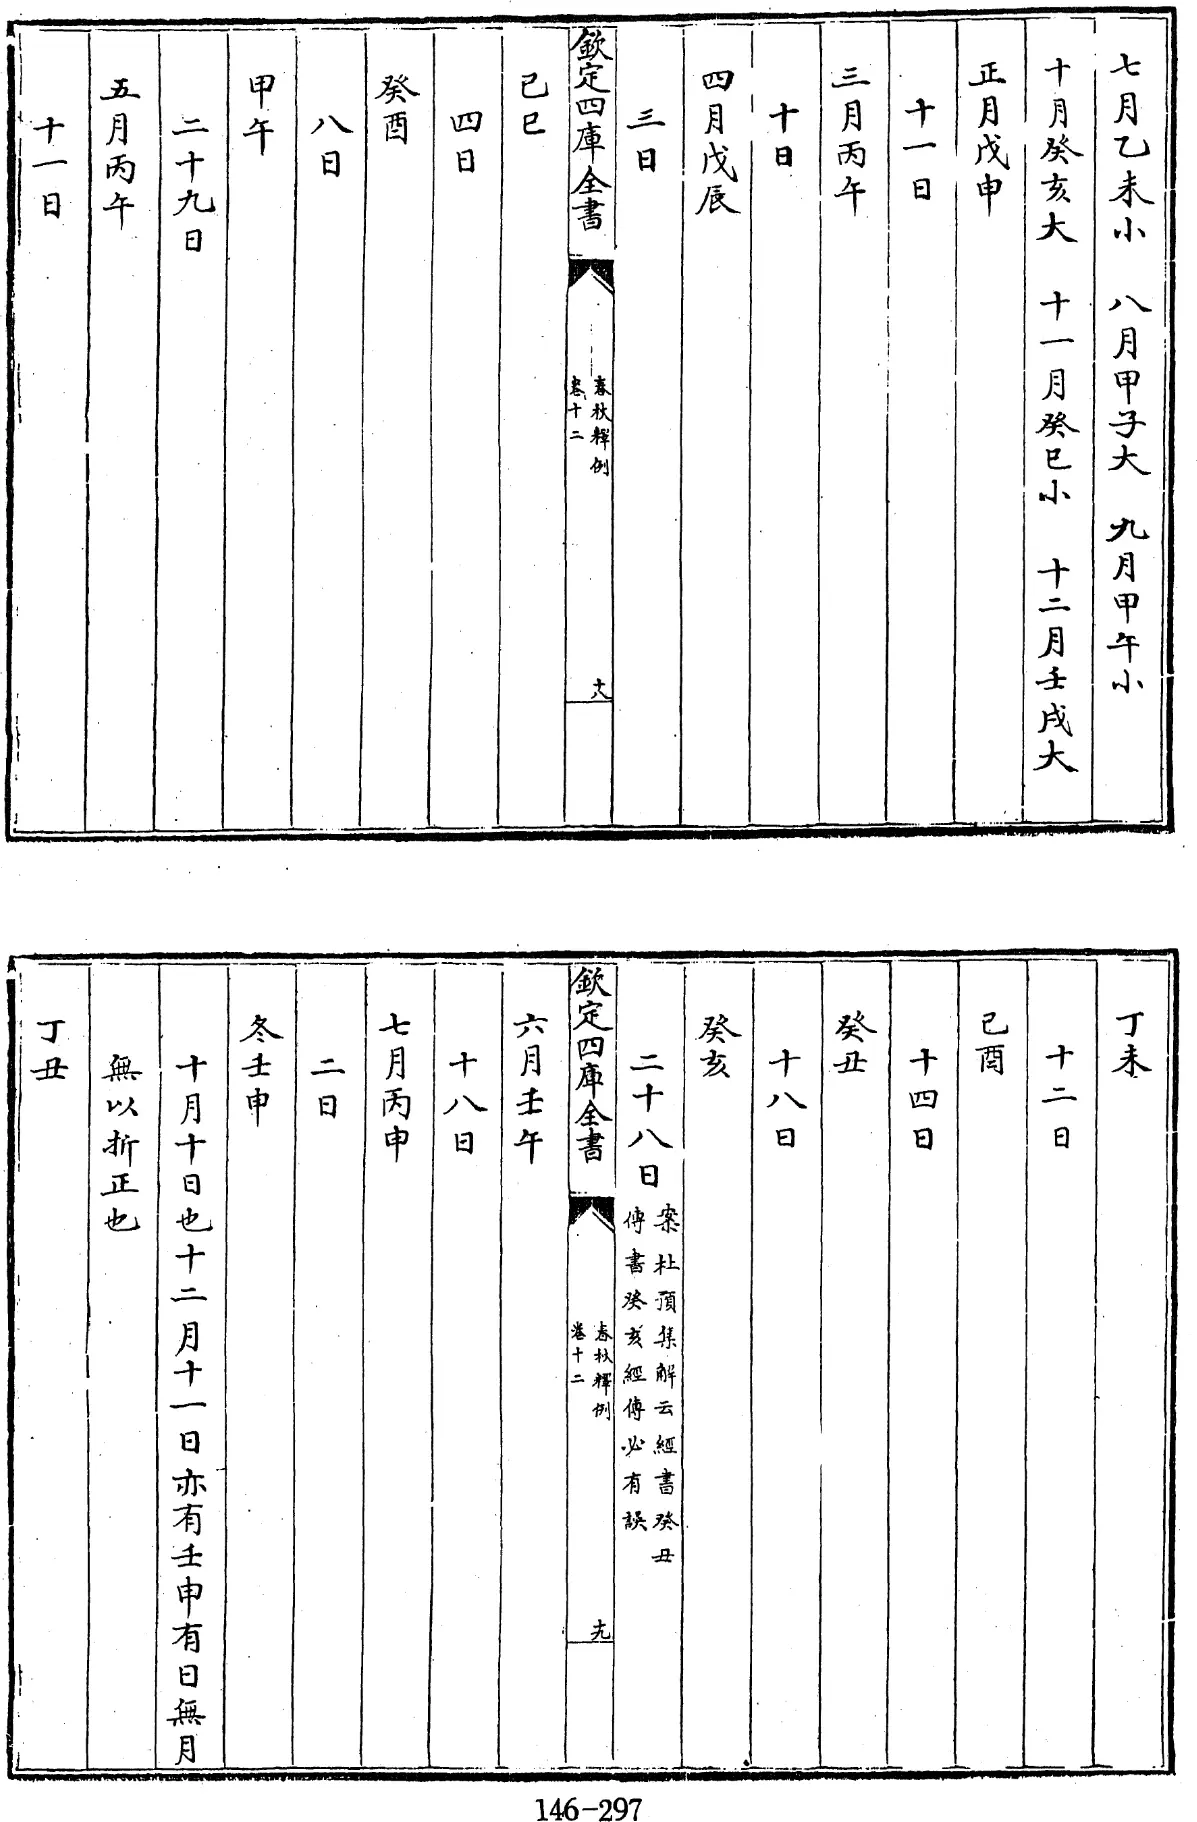 七月乙未小　八月甲子大　九月甲午小
十月癸亥大　十一月癸巳小　十二月壬戌大
正月戊申
十一日
三月丙午
十日
四月戊辰
三日
欽定四庫全書
春秋釋例
卷十二
十八
己巳
四日
癸酉
八日
甲午
二十九日
五月丙午
十一日
丁未
十二日
己酉
十四日
癸丑
十八日
癸亥
二十八日
案杜預集解云經書癸丑
傳書癸亥經傳必有誤
欽定四庫全書
春秋釋例
卷十二
十九
六月壬午
十八日
七月丙申
二日
冬壬申
十月十日也十二月十一日亦有壬申有日無月
無以折正也
丁丑
146-297